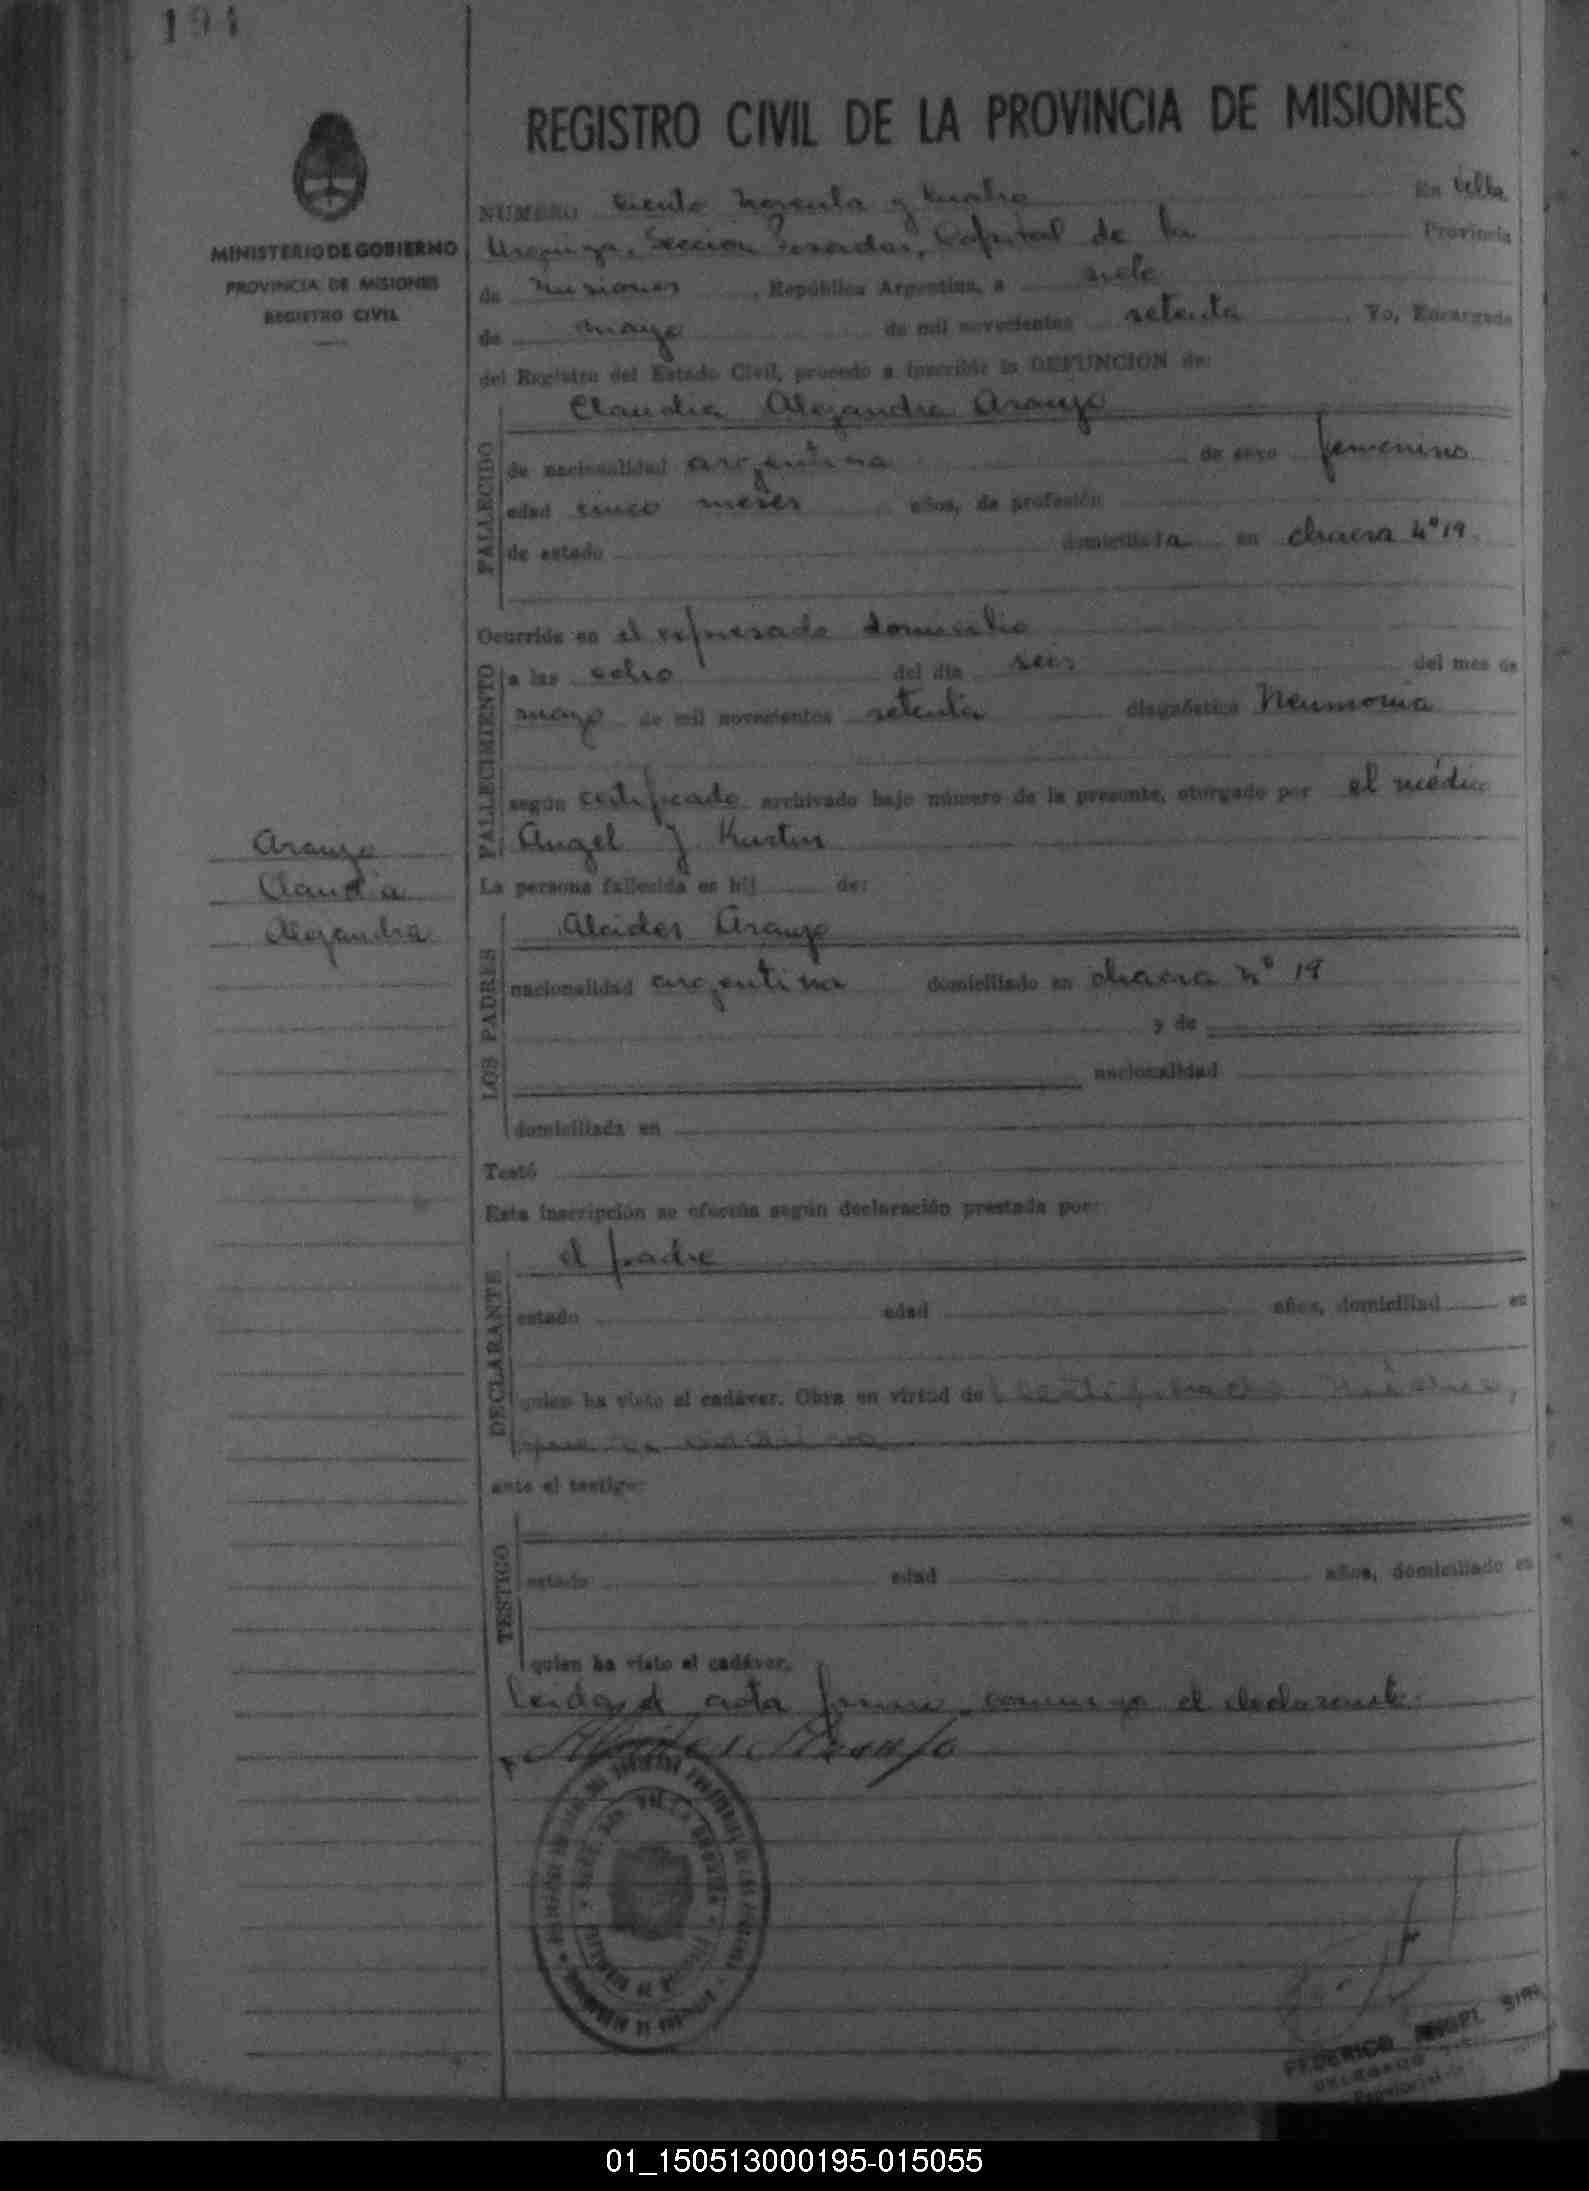 194
REGISTRO CIVIL DE LA PROVINCIA DE MISIONES
MINISTERIO DE GOBIERNO
PROVINCIA DE MISIONES
REGISTRO CIVIL
NUMERO ciento noventa y cuatro En Villa
Urquiza, Sección Posadas, Capital de la Provincia
de Misiones, República Argentina, a siete
de mayo de mil novecientos setenta. Yo, Encargado
del Registro del Estado Civil, procedo a inscribir la DEFUNCION de:
FALLECIDO
Claudia Alejandra Araujo
de nacionalidad argentina de sexo femenino
edad cinco meses años, de profesión
de estado domiciliada en chacra nº 19
FALLECIMIENTO
Ocurrido en el expresado domicilio
a las ocho del día seis del mes de
mayo de mil novecientos setenta diagnóstico Neumonia
según certificado archivado bajo número de la presente, otorgado por el médico
Angel J
Araujo
Claudia
Alejandra
La persona fallecida es hij de:
LOS PADRES
Alcides Araujo
nacionalidad argentina domiciliado en chacra nº 19
y de
nacionalidad
domiciliada en
Testó
Esta inscripción se efectúa según declaración prestada por:
DECLARANTE
el padre
estado edad años, domiciliad en
quien ha visto el cadáver. Obra en virtud de
ante el testigo:
TESTIGO
estado edad años, domiciliado en
quien ha visto el cadáver.
Leida el acta firma conmigo el declarante.
Alcides Araujo
FEDERICO
DELEGADO
01_150513000195-015055